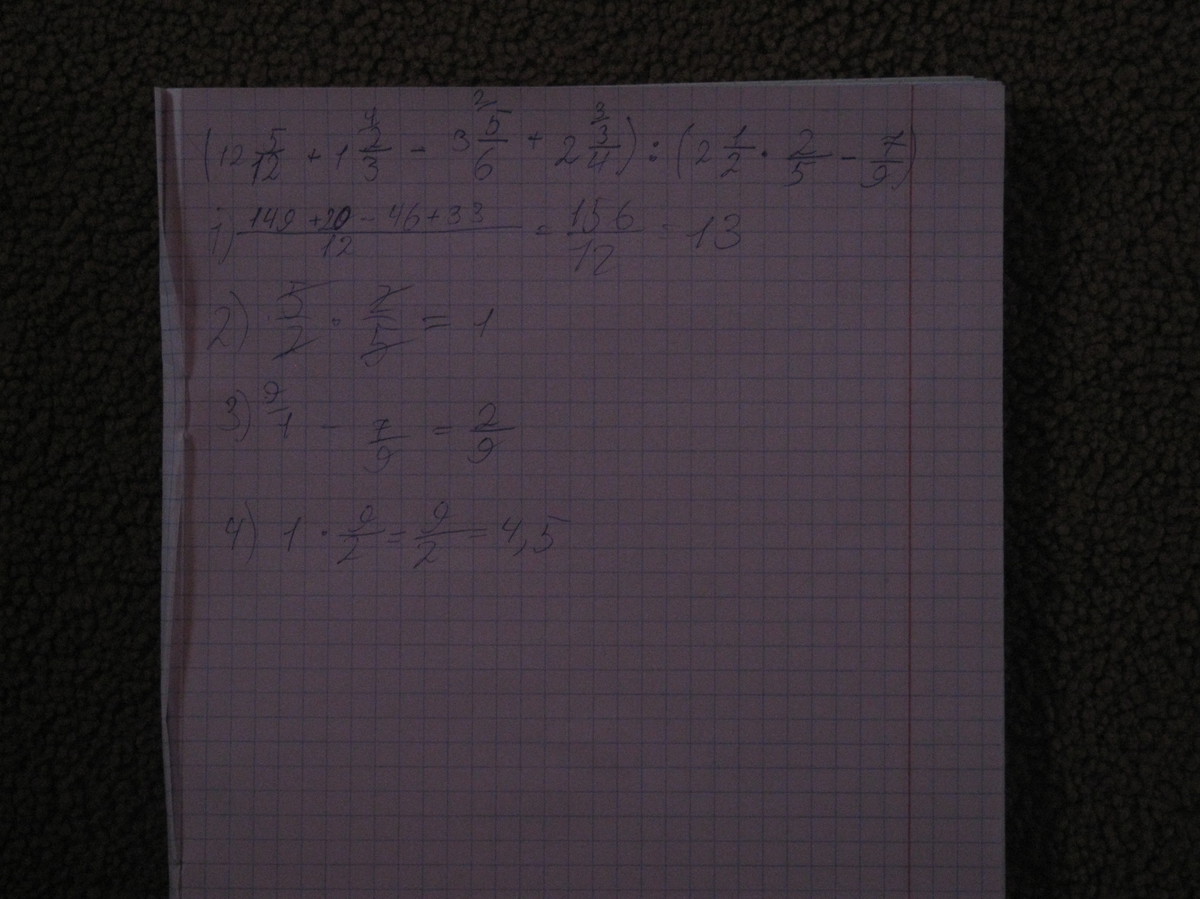 (12 5/12 + 1 2/3 - 3 5/6 + 2 3/4) : (2 1/2 · 2/5 - 7/9)
1) (149 + 20 - 46 + 33)/12 = 156/12 = 13
2) 5/2 · 2/5 = 1
3) 9/1 - 7/9 = 2/9
4) 1 · 9/2 = 9/2 = 4,5